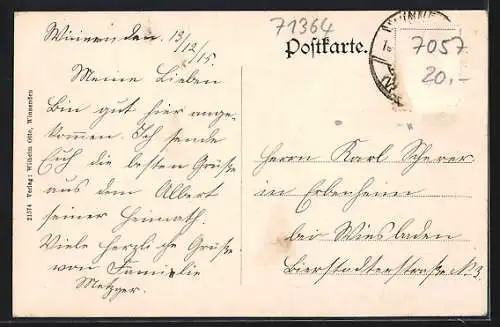 71364
Postkarte.
7057
20,-
Winnenden. 13/12/15
Meine Lieben
Bin gut hier ange-
kommen. Ich sende
Euch die besten Grüße
aus dem Albert
seiner Heimath.
Viele herzliche Grüße
von Familie
Metzger.
Herrn Karl Scherer
in Erbenheim
bei Wiesbaden
Bierstadterstraße N 3.
21574 Verlag: Wilhelm Otto, Winnenden